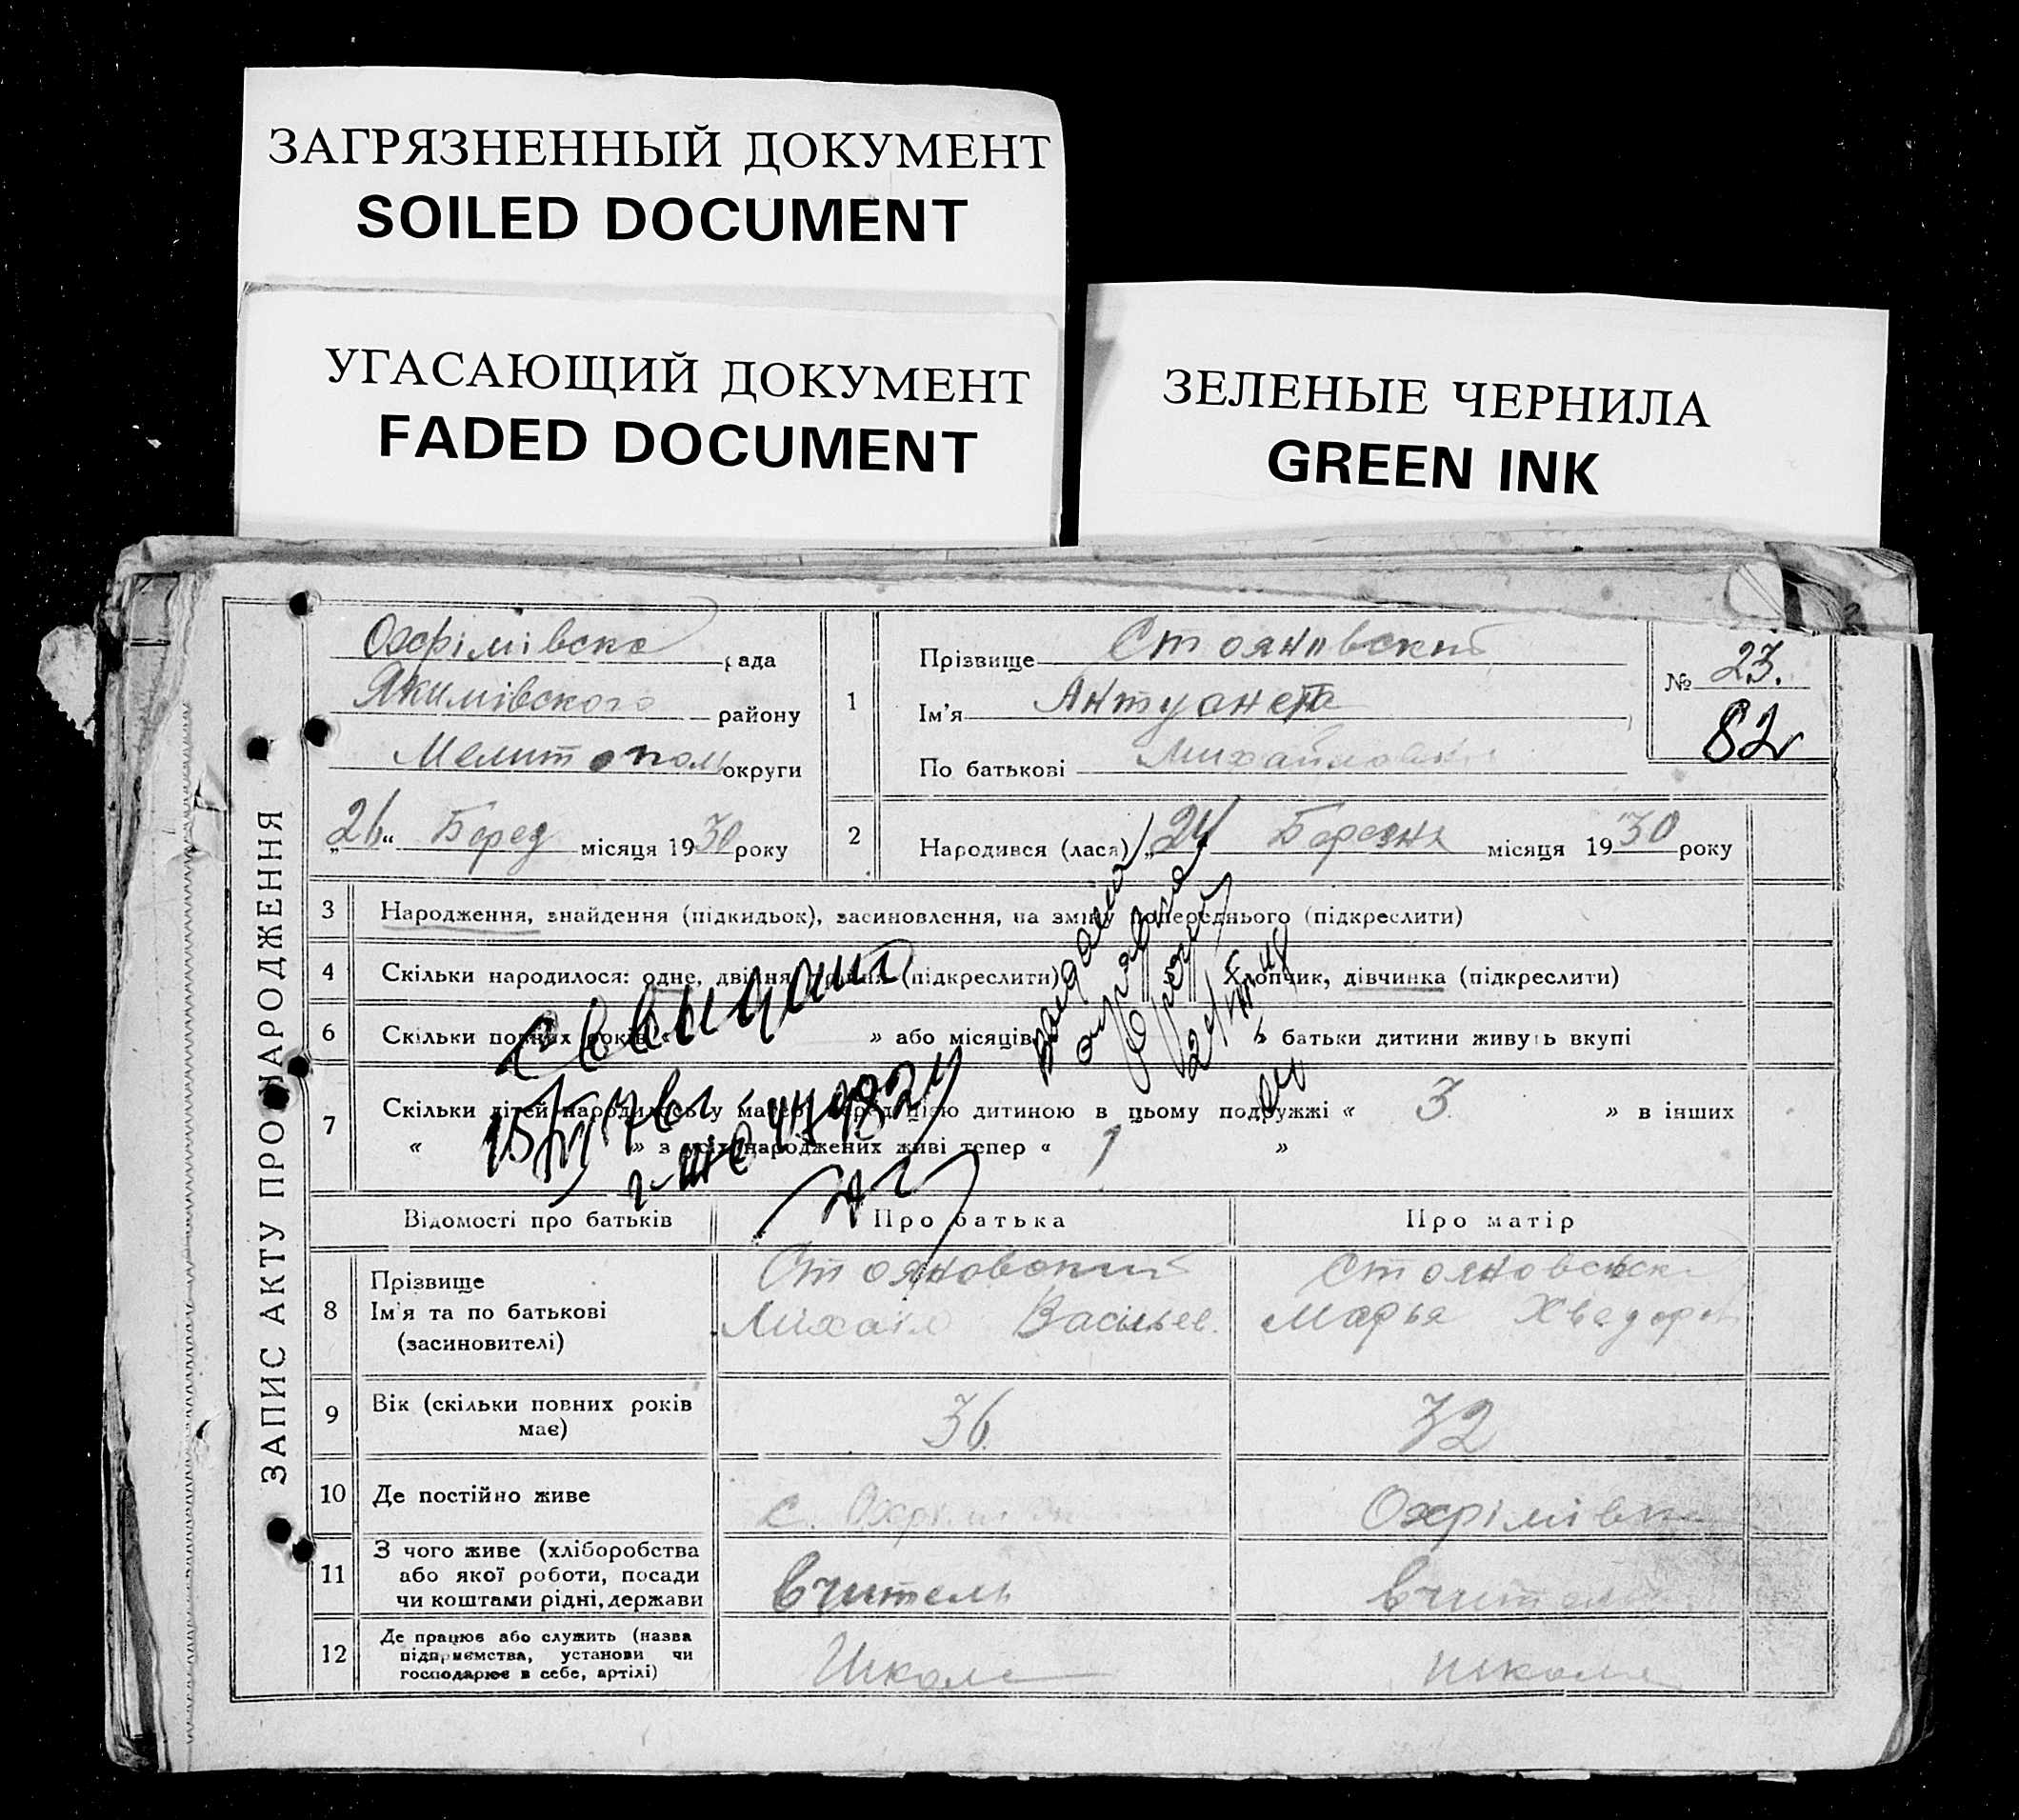 ЗАГРЯЗНЕННЫЙ ДОКУМЕНТ
SOILED DOCUMENT
УГАСАЮЩИЙ ДОКУМЕНТ
FADED DOCUMENT
ЗЕЛЕНЫЕ ЧЕРНИЛА
GREEN INK
ЗАПИС АКТУ ПРО НАРОДЖЕННЯ
Охрімівска рада
Якимівского району
Мелитополь округи
„26“ Берез місяця 1930 року
1
Прізвище Стояновский
Ім'я Антуанета
По батькові
№ 23.
82
2
Народився (лася) „24 Березня місяця 1930 року
3 Народження, знайдення (підкидьок), засиновлення, на зміну попереднього (підкреслити)
4 Скільки народилося: одне, двійня, трійня (підкреслити)
Хлопчик, дівчинка (підкреслити)
6 Скільки повних років «
» або місяців
батьки дитини живуть вкупі
7 Скільки дітей народилось у матері перед цією дитиною в цьому подружжі « 3 » в інших
« » з усіх народжених живі тепер « 1 »
Відомості про батьків Про батька Про матір
8 Прізвище
Ім'я та по батькові
(засиновителі)
Стояновский
Міхаіл Васільев.
Стояновск
Марья Хведор
9 Вік (скільки повних років
має)
36
32
10 Де постійно живе
с. Охрім
Охрімівка
11 З чого живе (хліборобства
або якої роботи, посади
чи коштами рідні, держави
Вчитель
Вчитель
12 Де працює або служить (назва
підприємства, установи чи
господарює в себе, артілі)
Школа
школа